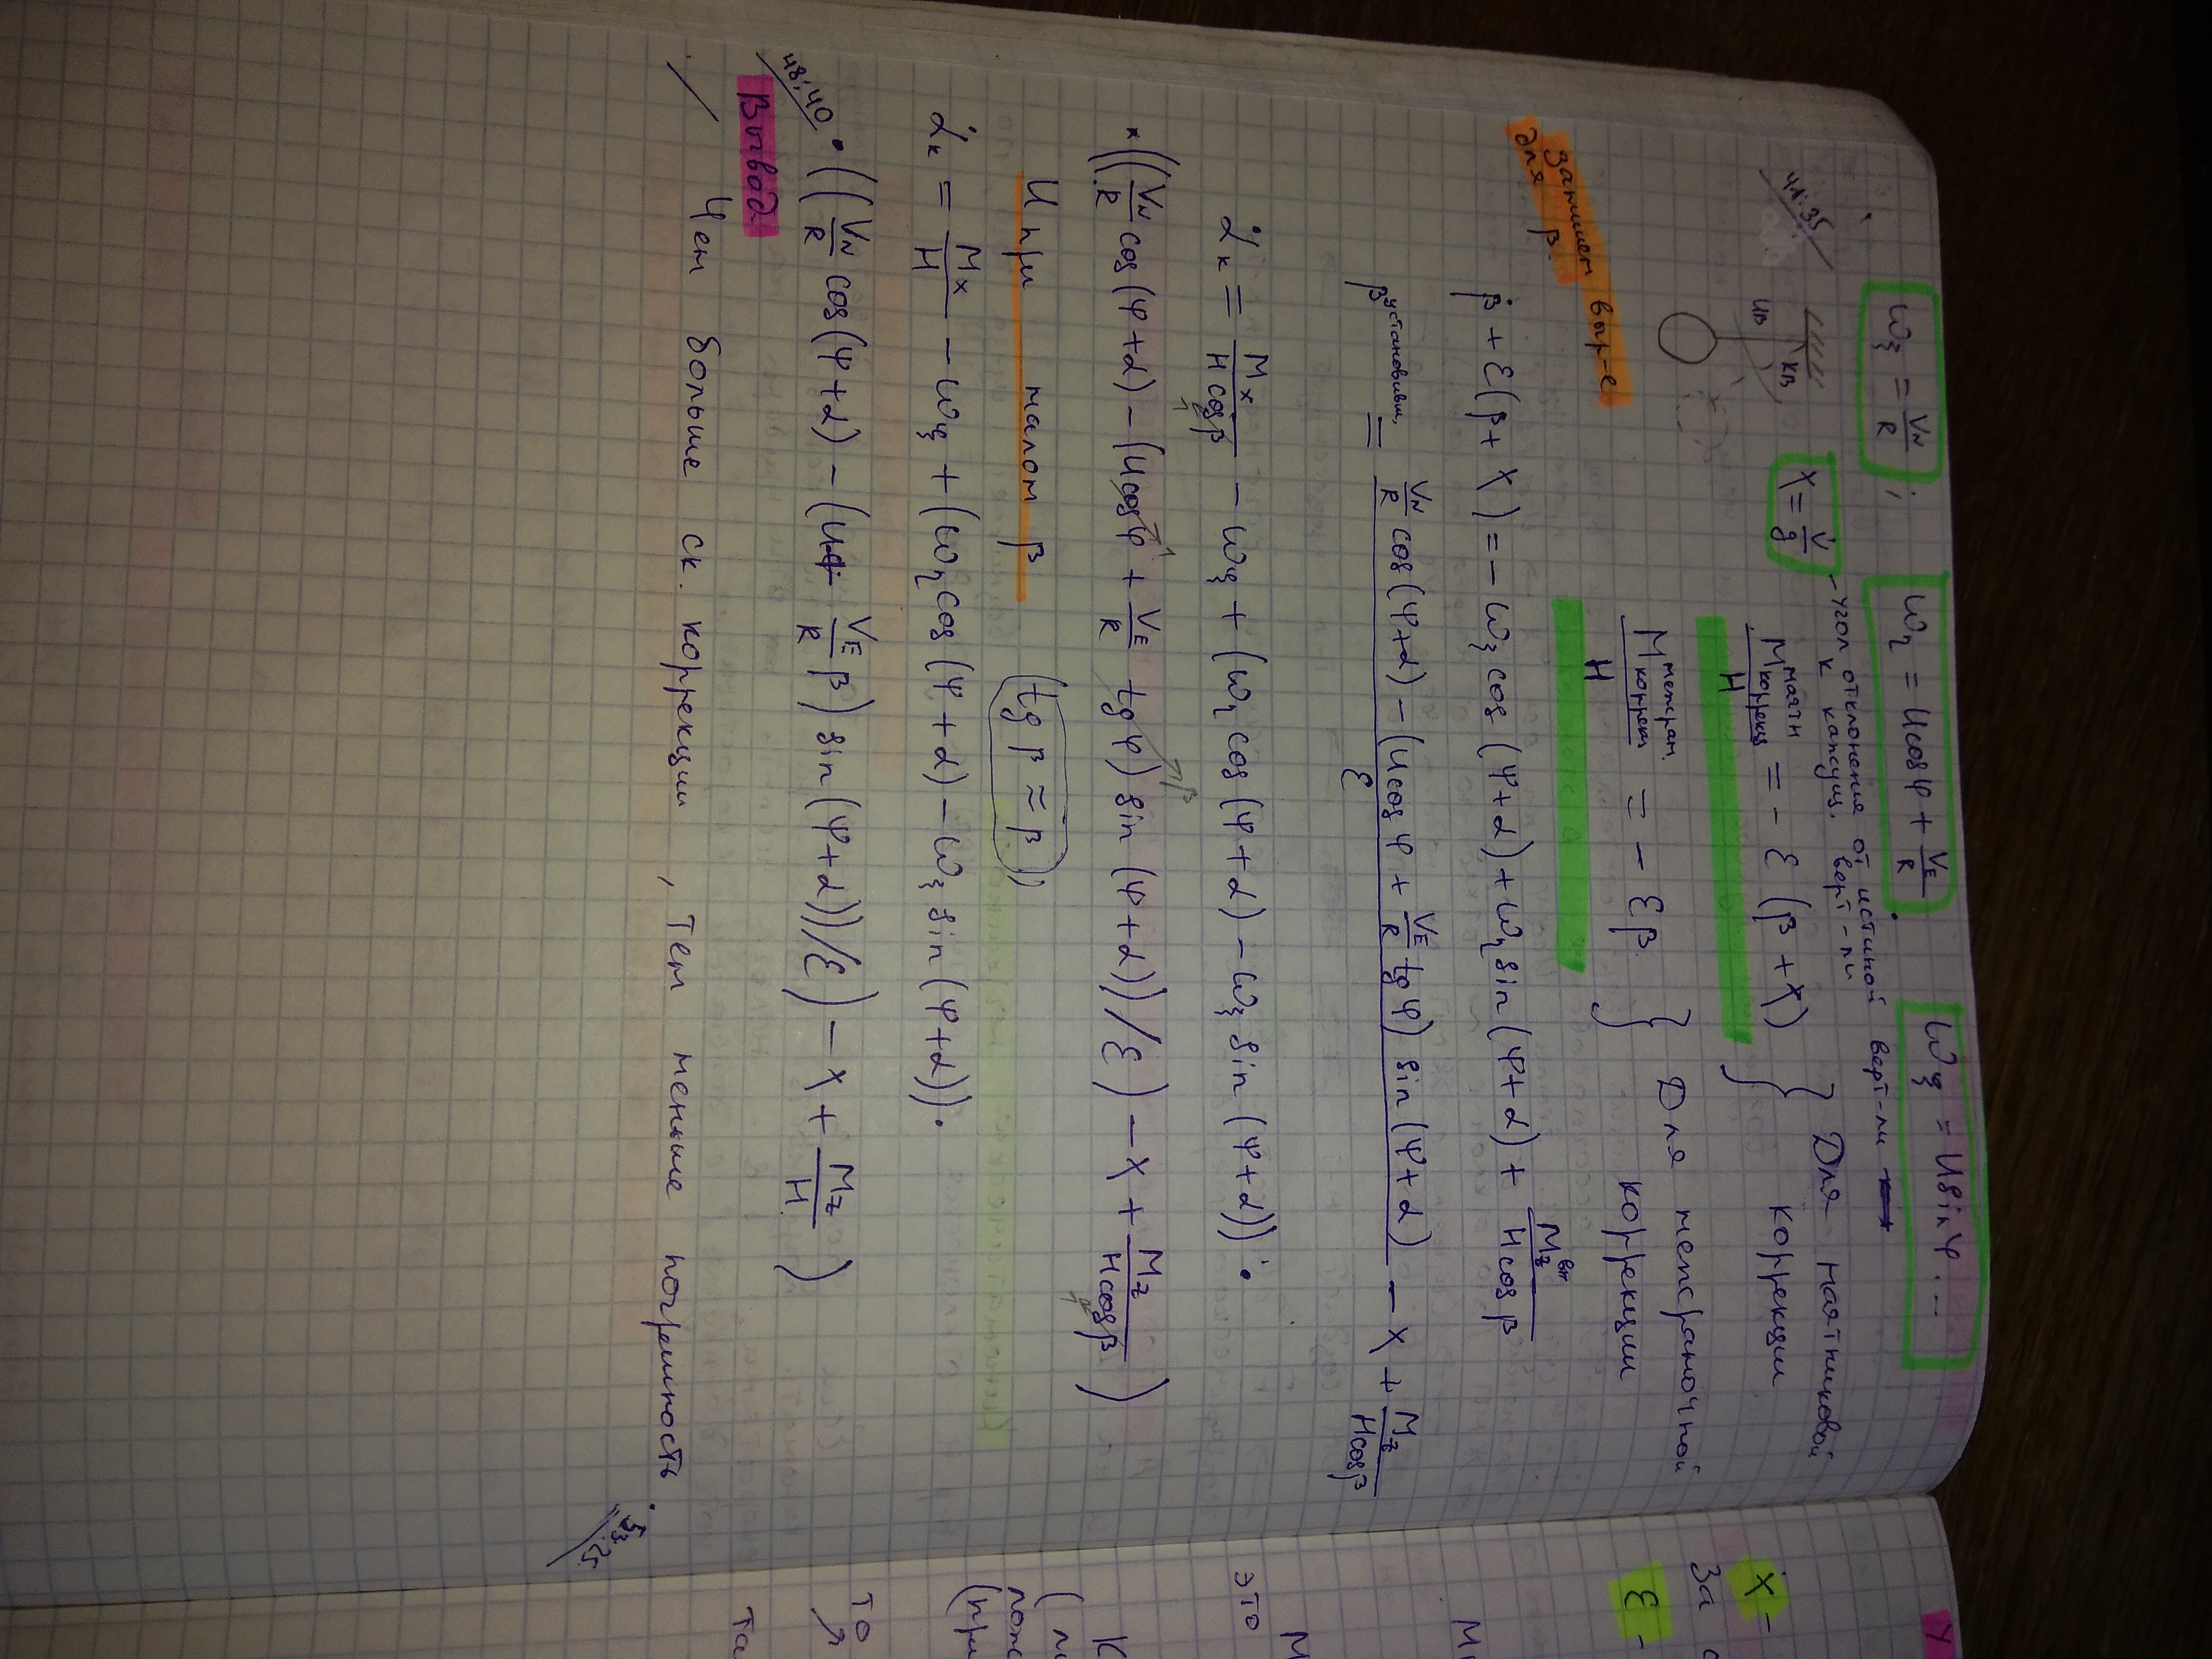 ω_ξ = V_N/R ; ω_η = U cos φ + V_E/R ω_ζ = U sin φ ...
41:35
χ = V̇/g - угол отклонения от истиной верт-ли
к капсул. верт-ли
ИВ КВ
M^маятн_коррекц/H = - ε (β + χ) } Для маятниковой
коррекции
M^межрам._коррекц/H = - ε β } Для межрамочной
коррекции
Запишем выр-е
для β
β̇ + ε(β + χ) = - ω_ξ cos (ψ + α) + ω_η sin (ψ + α) + M_z^вн/(H cos β)
β установивш. = (V_N/R cos (ψ + α) - (U cos φ + V_E/R tg φ) sin (ψ + α))/ε - χ + M_z/(H cos β)
α̇_к = M_x/(H cos β) - ω_ζ + (ω_η cos (ψ + α) - ω_ξ sin (ψ + α)) ·
× ((V_N/R cos (ψ + α) - (U cos φ + V_E/R tg φ) sin (ψ + α))/ε) - χ + M_z/(H cos β))
И при малом β (tg β ≈ β),
α̇_к = M_x/H - ω_ζ + (ω_η cos (ψ + α) - ω_ξ sin (ψ + α)) ·
48:40
· ((V_N/R cos (ψ + α) - (U + V_E/R β) sin (ψ + α))/ε) - χ + M_z/H)
Вывод
Чем больше ск. коррекции, тем меньше погрешность.
53:25
χ -
За
ε -
М
М
это
К
то
та